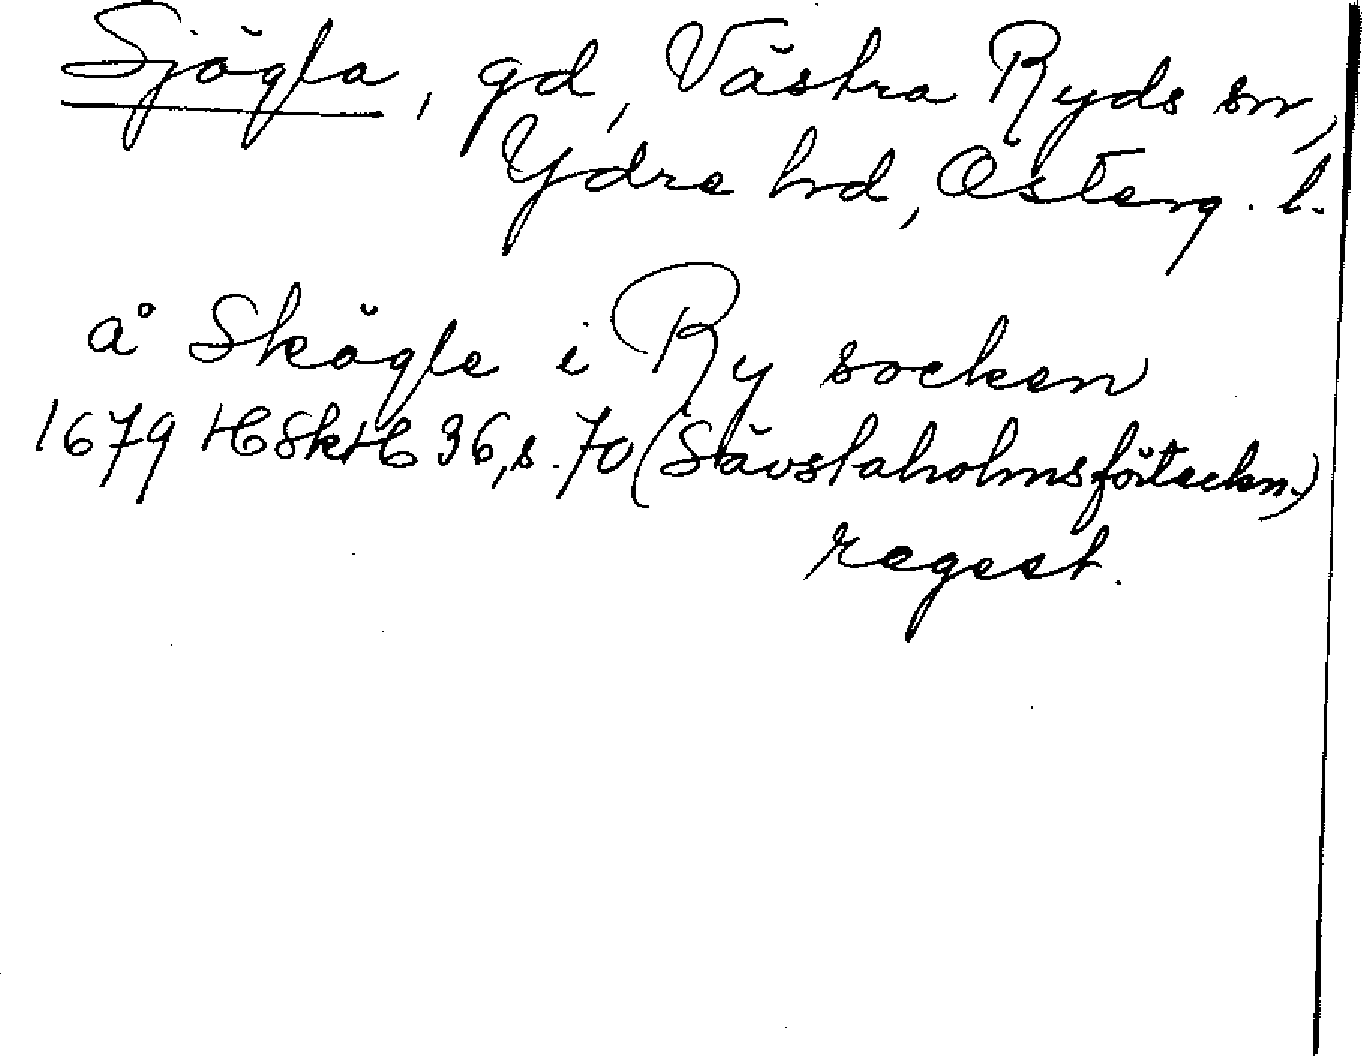 Sjögla, gd, Västra Ryds sn,
Ydre hd, Österg. l.
å Skögle i Ry socken
1679 HSkH 36, s. 70 (Sävstaholmsförteckn.)
regest.